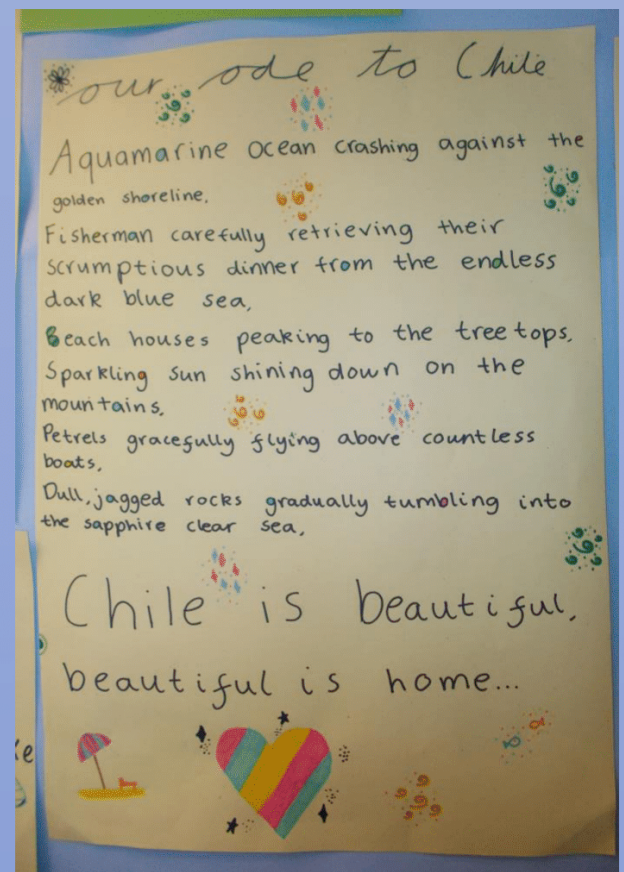 our ode to Chile
Aquamarine ocean crashing against the
golden shoreline.
Fisherman carefully retrieving their
scrumptious dinner from the endless
dark blue sea,
Beach houses peaking to the tree tops.
Sparkling sun shining down on the
mountains.
Petrels gracefully flying above countless
boats,
Dull, jagged rocks gradually tumbling into
the sapphire clear sea,
Chile is beautiful,
beautiful is home...